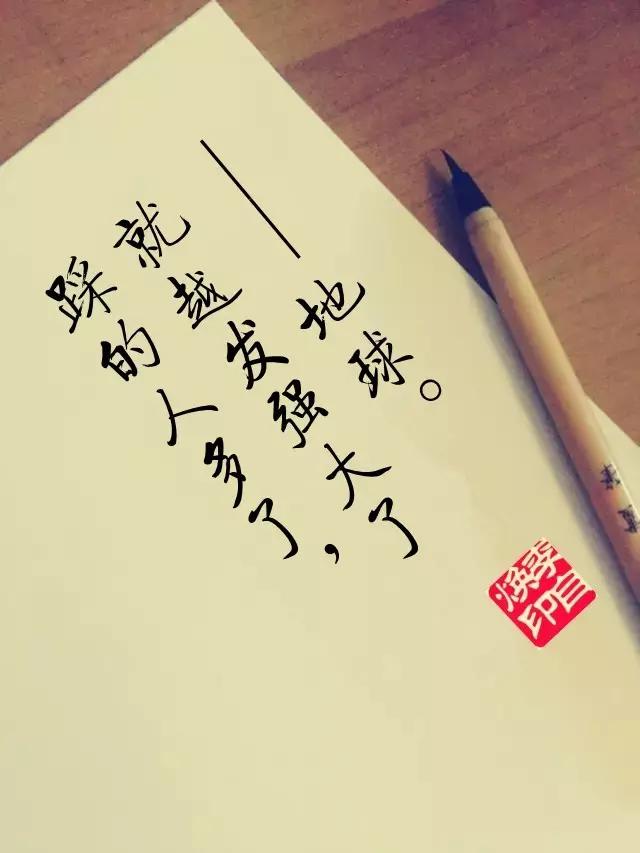 踩的人多了，
就越发强大了
——地球。
李自
焕印